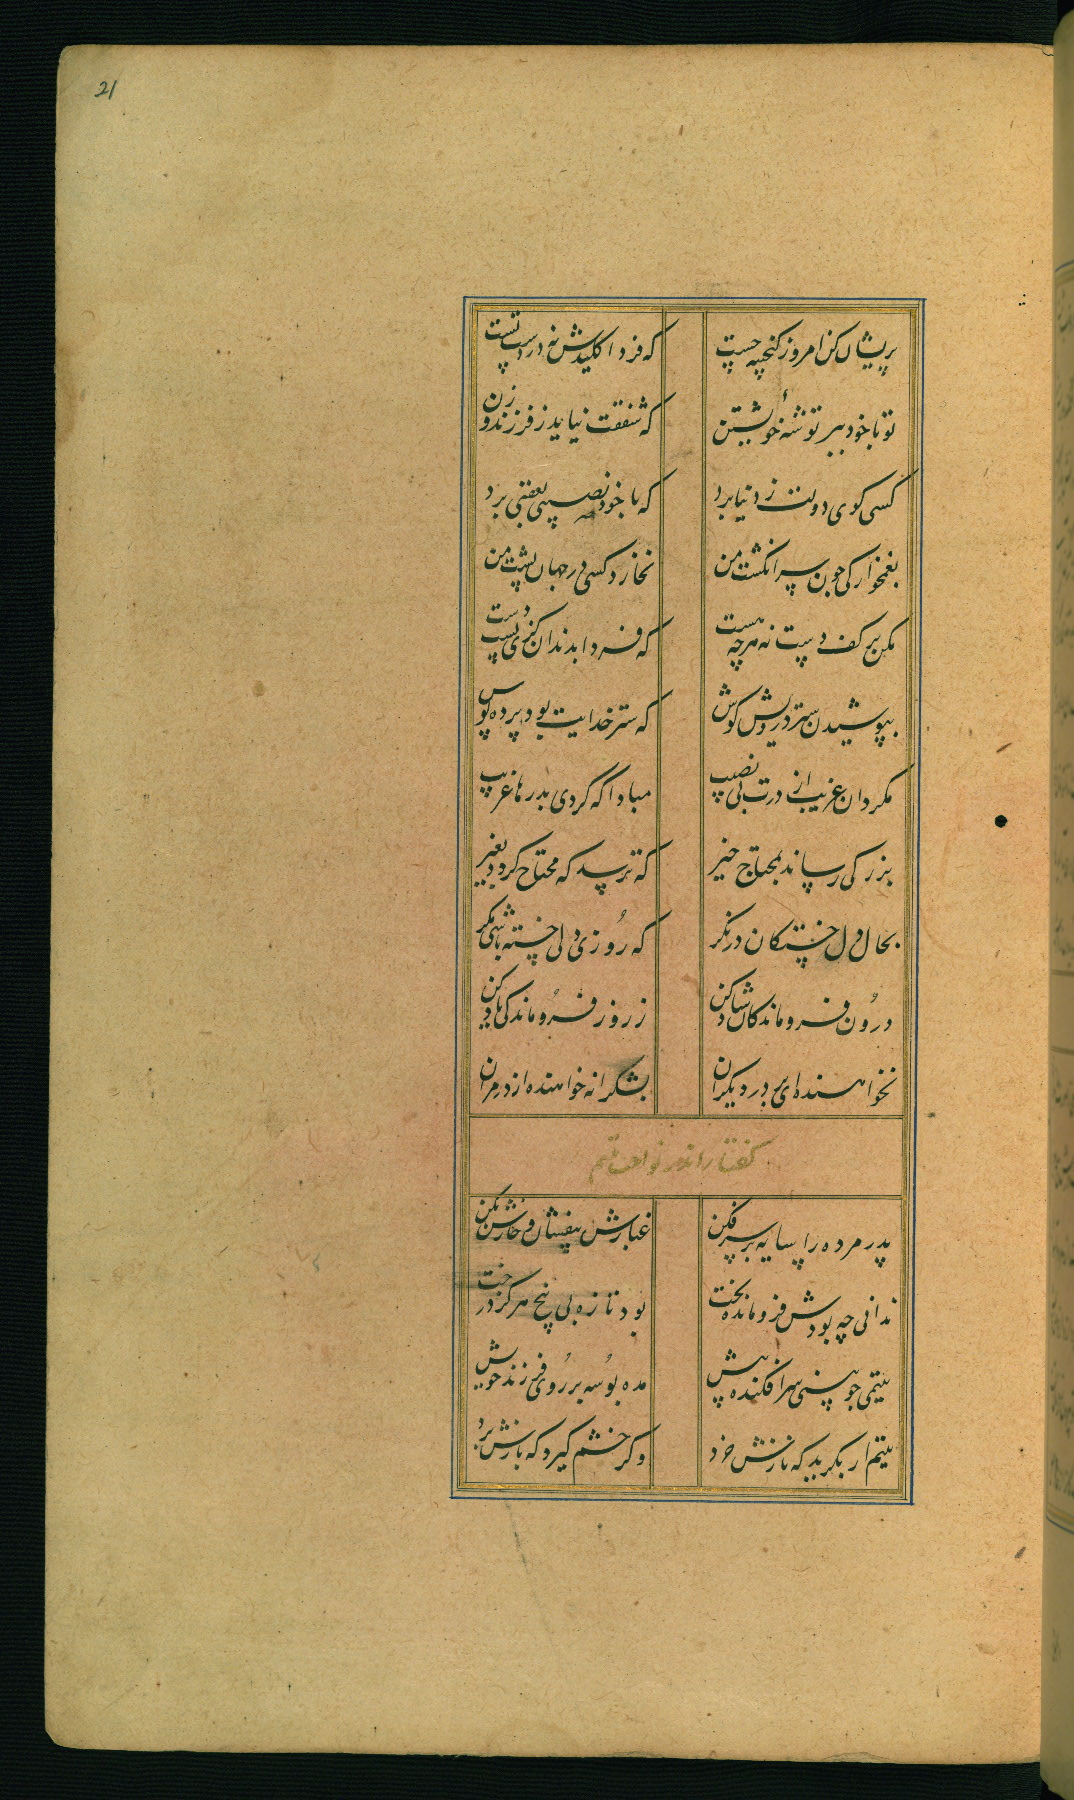 21
پریشان کن امروز کنجینه چست که فردا کلیدش نه در دست تست
تو با خود ببر توشهٔ خویشتن که شفقت نیاید ز فرزند و زن
کسی کوی دولت ز دنیا برد که با خود نصیبی بعقبی برد
بغمخوارکی چون سر انکشت من نخارد کسی در جهان پشت من
مکن بر کف دست نه هرچه هست که فردا بدندان کزی پشت دست
بپوشیدن ستر درویش کوش که ستر خدایت بود پرده پوش
مکردان غریب از درت بی نصیب مبادا که کردی بدرها غریب
بزرکی رساند بمحتاج خیر که ترسد که محتاج کردد بغیر
بحال دل خستکان درنکر که روزی دلی خسته باشی مکر
درون فروماندکان شاد کن ز روز فروماندکی یاد کن
نخواهنده‌ای بر در دیکران بشکرانه خواهنده از در مران
کفتار اندر نواخت یتیم
پدر مرده را سایه بر سر فکن غبارش بیفشان و خارش بکن
ندانی چه بودش فرومانده بخت بود تازه بی بیخ هرکز درخت
یتیمی چو بینی سر افکنده پیش مده بوسه بر روی فرزند خویش
یتیم ار بکرید که نازش خرد وکر خشم کیرد که بارش برد